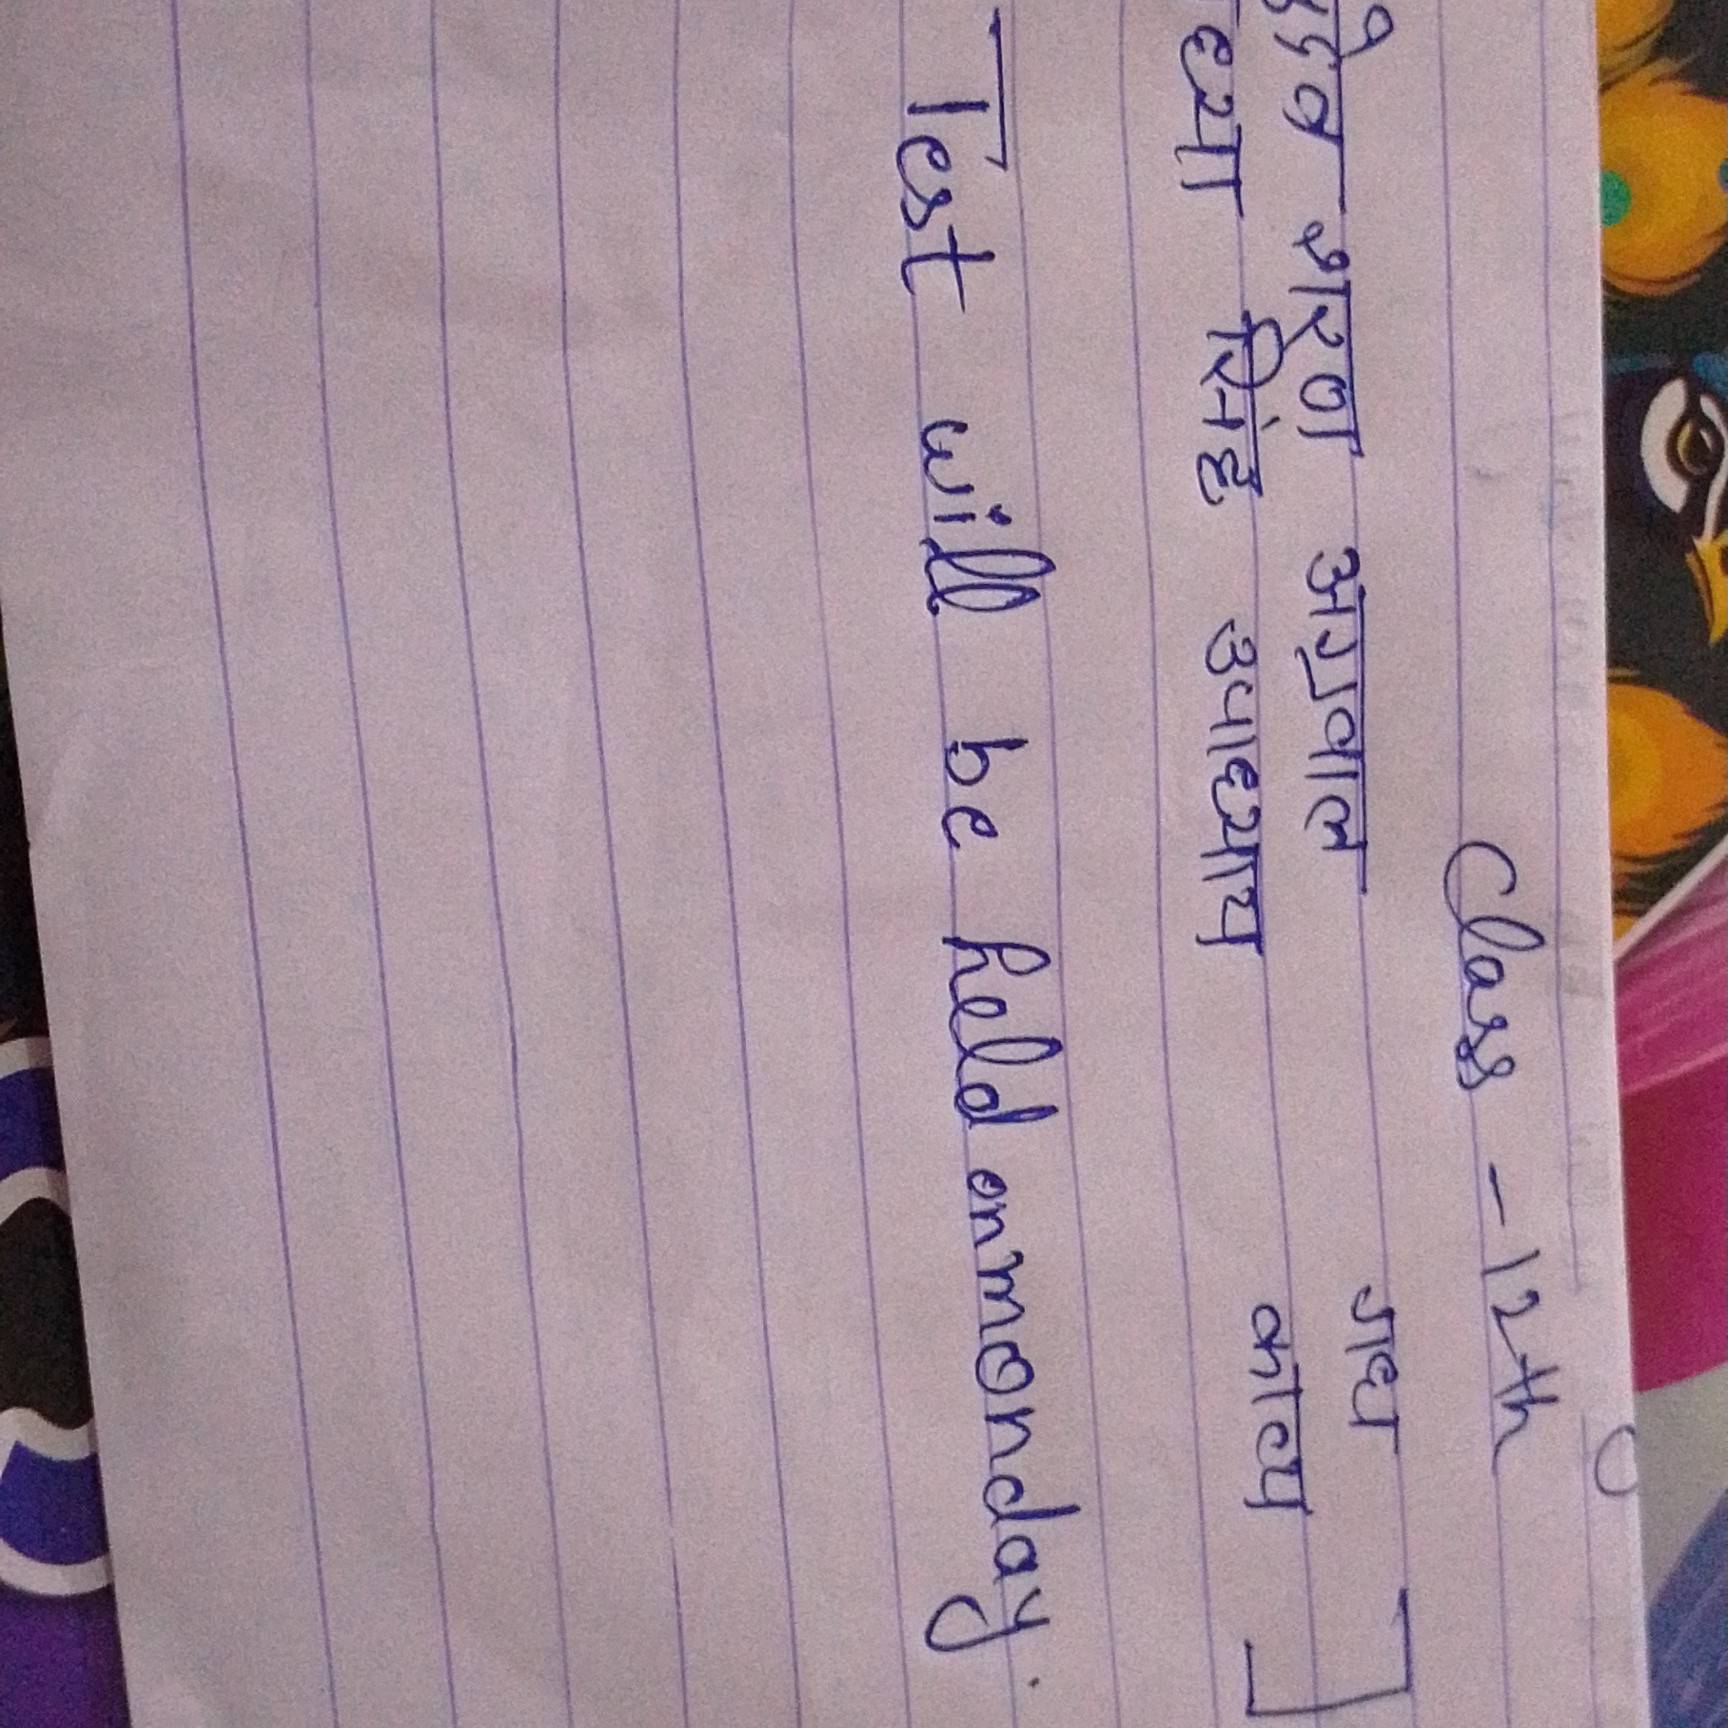 Class - 12th
शरण अग्रवाल गद्य
सिंह उपाध्याय काव्य
Test will be held on monday.